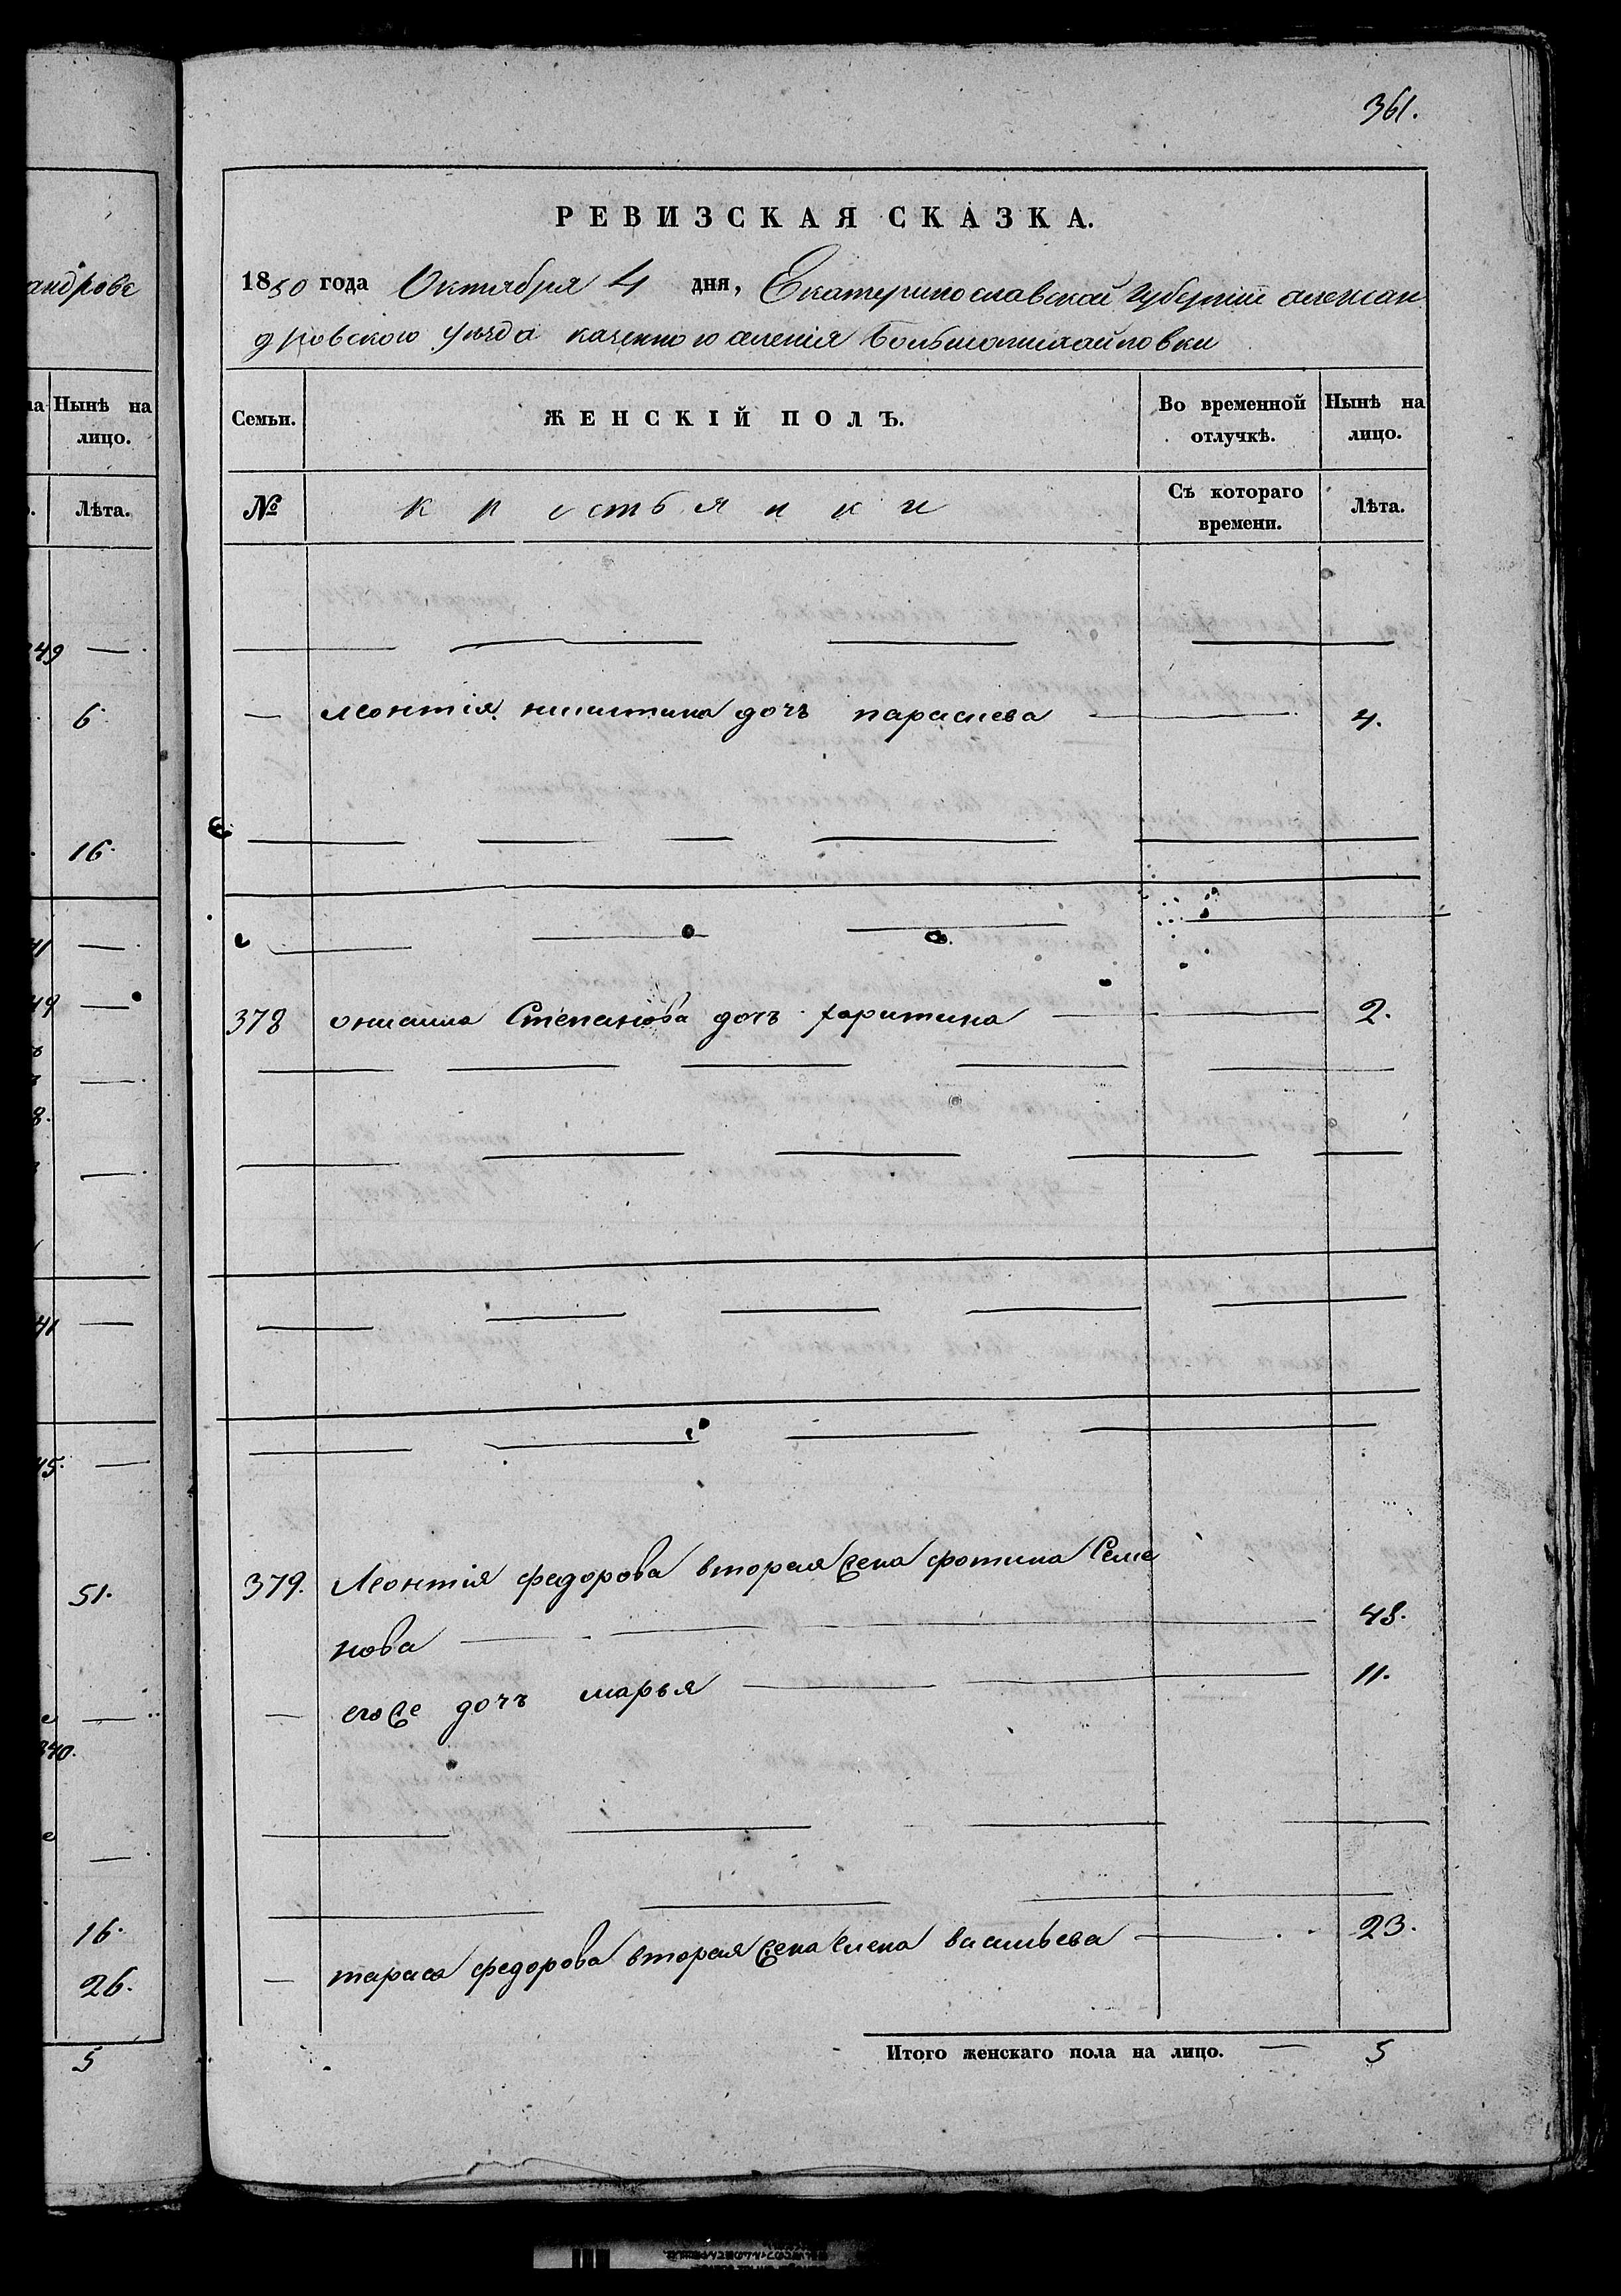 361.
РЕВИЗСКАЯ СКАЗКА.
1850 года Октября 4 дня, Екатеринославской губерніи алексан
дровского уѣзда казенного селенія Большомихайловки
Семьи. ЖЕНСКІЙ ПОЛЪ. Во временной отлучкѣ. Нынѣ на лицо.
№ крестьянки Съ котораго времени. Лѣта.
— Леонтія никитина дочь парасиева — 4.
378 Степанова дочь харитина — 2.
379. Леонтія федорова вторая жена фотина Семе
нова — 48.
— егоже дочь марья — 11.
— тараса федорова вторая жена елена васильева — 23.
Итого женскаго пола на лицо. — 5
андровс
на Нынѣ на лицо.
Лѣта.
49 —
6
16.
41 —
49 —
8.
41 —
45. —
51.
340.
16.
26.
5